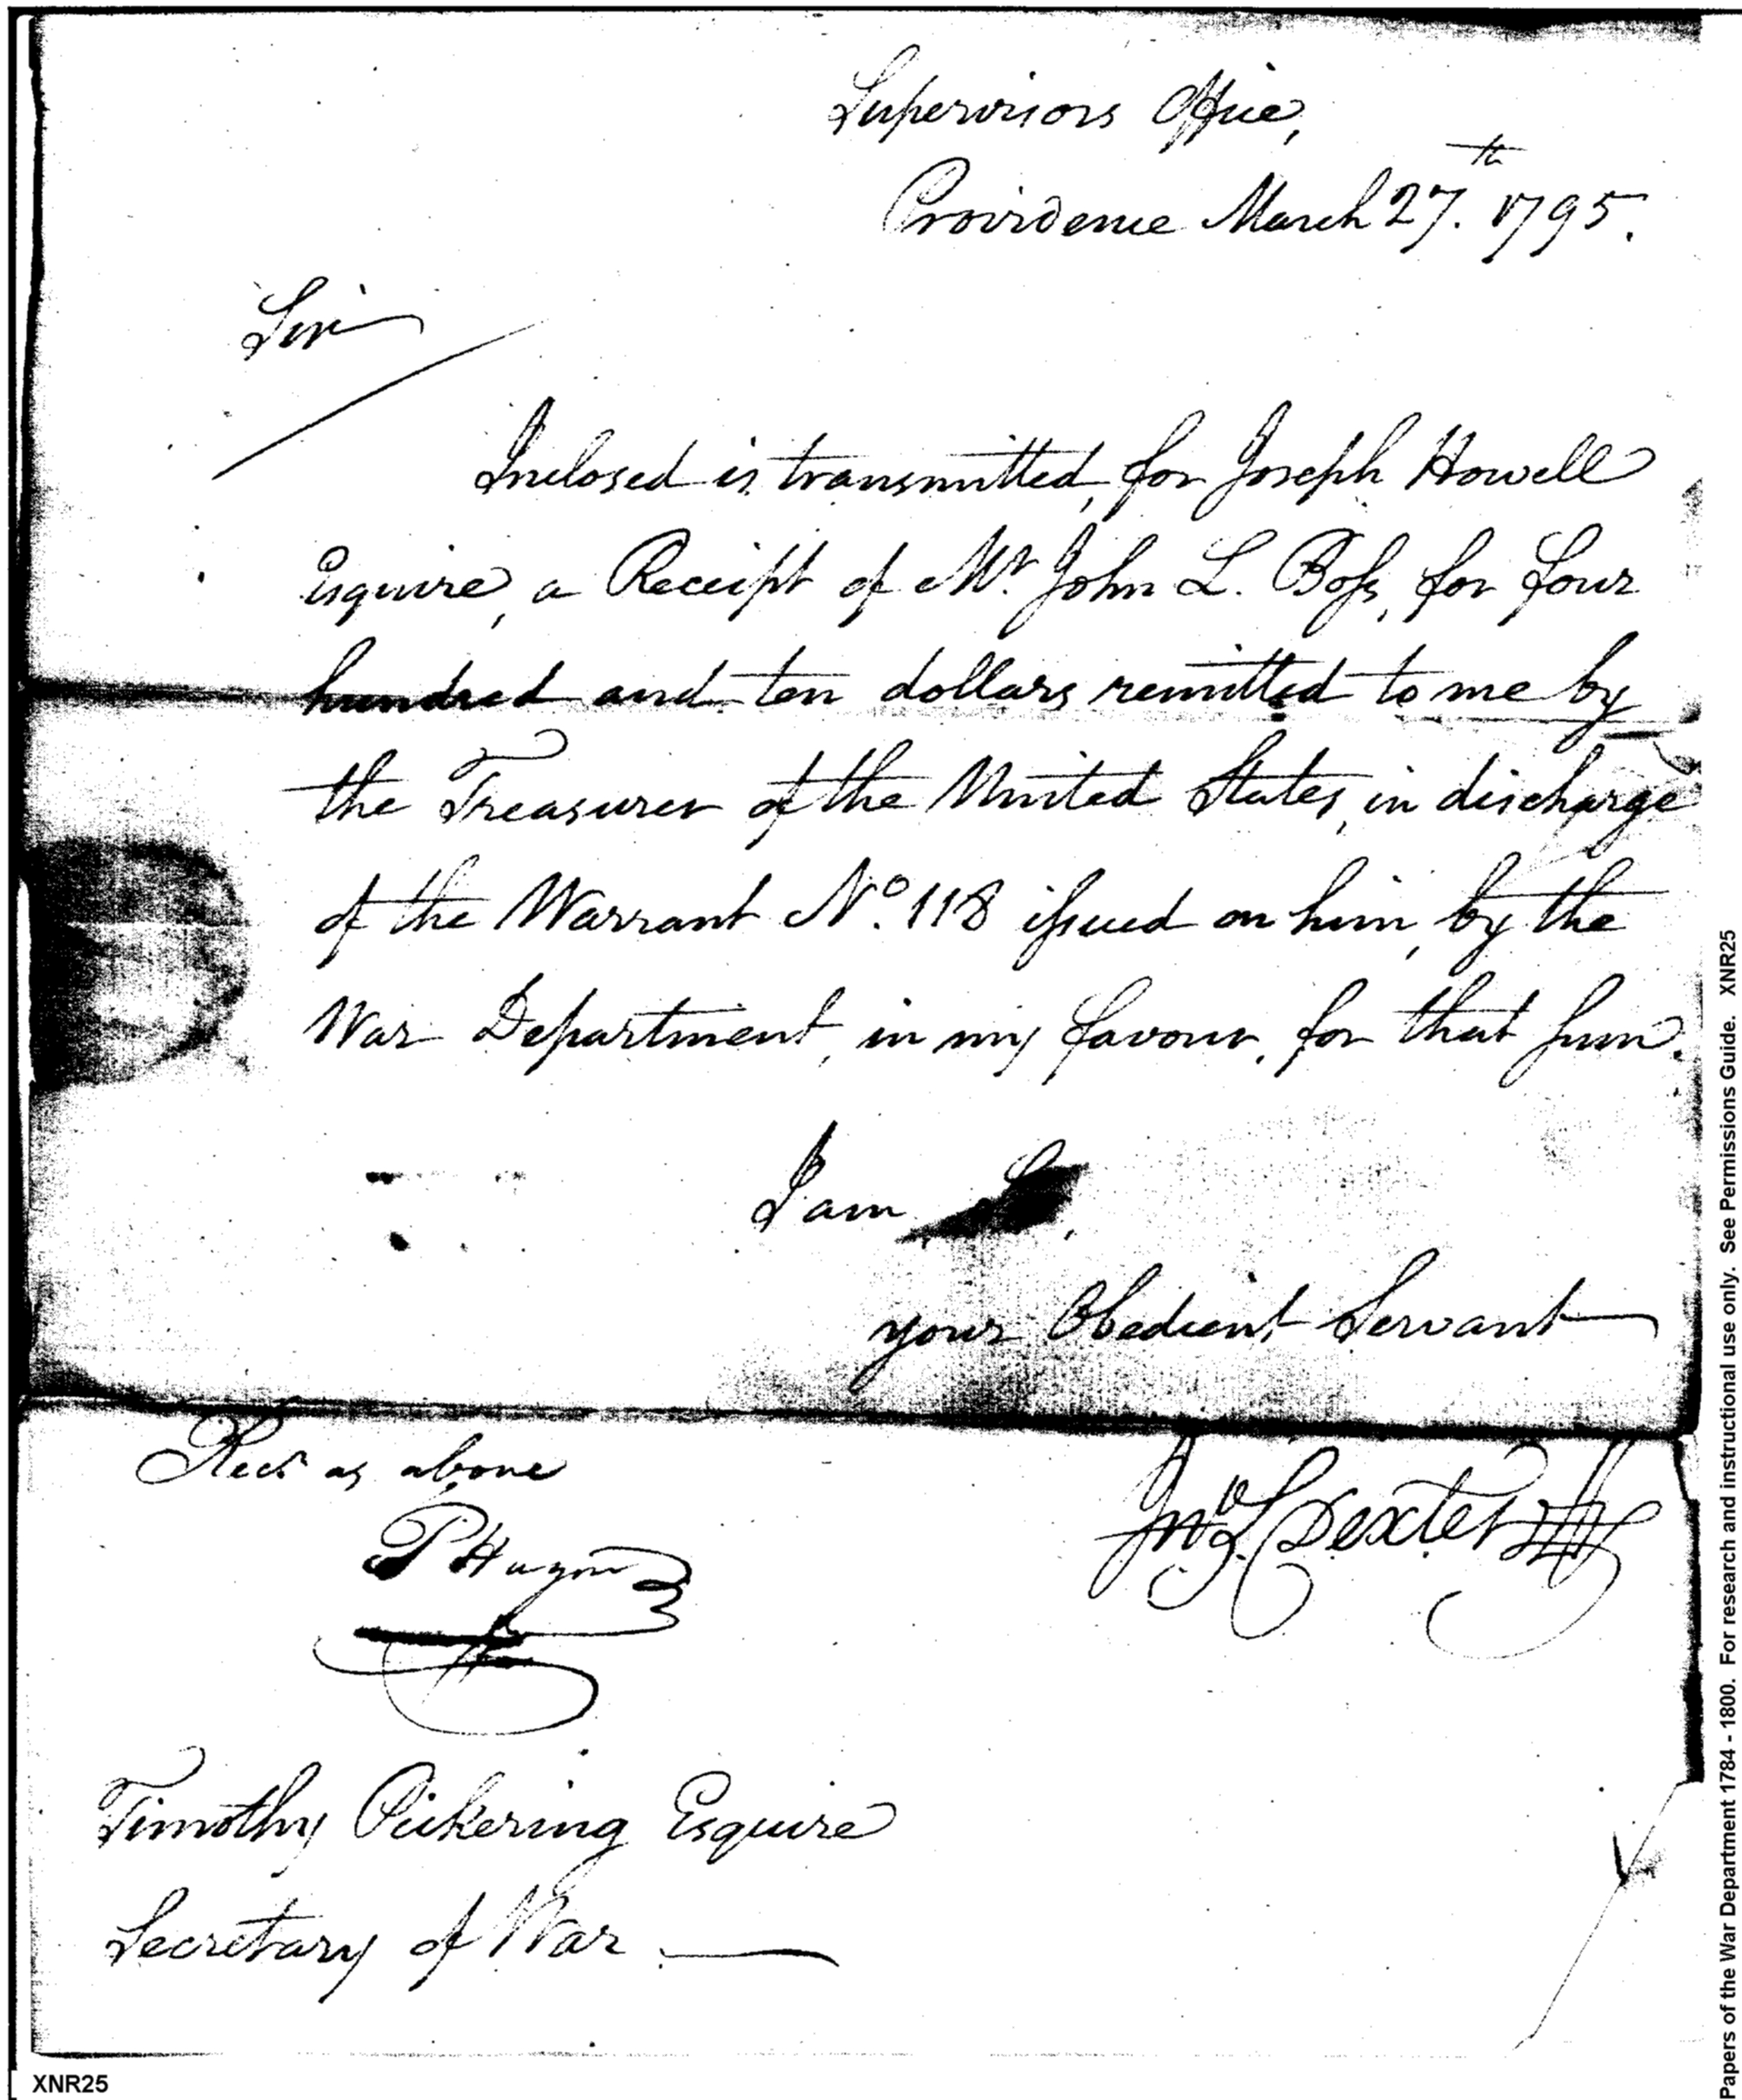 Supervisors Office,
Providence March 27.th 1795.
Sir
Inclosed is transmitted, for Joseph Howell
Esquire, a Receipt of Mr. John L. Boſs, for four
hundred and ten dollars remitted to me by
the Treasurer of the United States, in discharge
of the Warrant No. 118 iſsued on him, by the
War Department, in my favour, for that ſum.
I am Sir,
your Obedient Servant
Recd as above
Jno. S. Dexter
P Hagner
Timothy Pickering Esquire
Secretary of War
XNR25
Papers of the War Department 1784 - 1800. For research and instructional use only. See Permissions Guide. XNR25